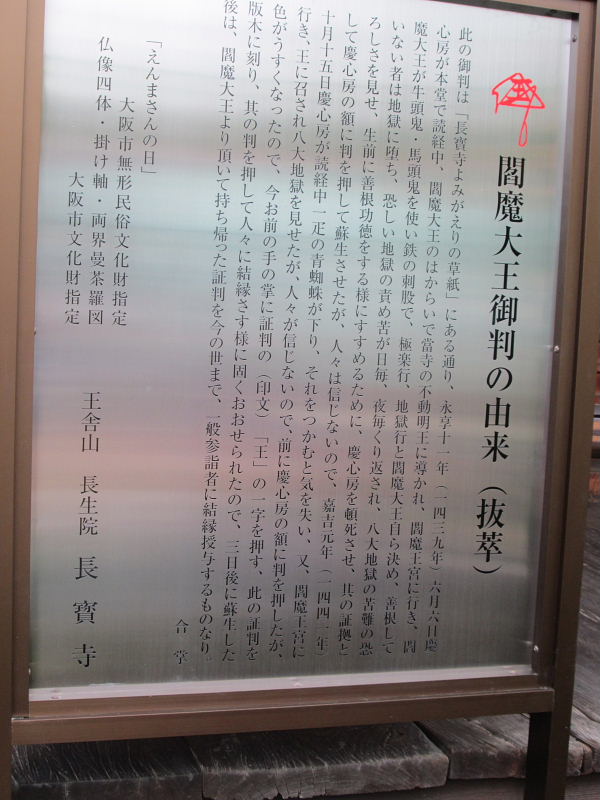 閻魔大王御判の由来(抜萃)
此の御判は「長寶寺よみがえりの草紙」にある通り、永享十一年(一四三九年)六月六日慶
心房が本堂で読経中、閻魔大王のはからいで當寺の不動明王に導かれ、閻魔王宮に行き、閻
魔大王が牛頭鬼・馬頭鬼を使い鉄の刺股で、極楽行、地獄行と閻魔大王自ら決め、善根して
いない者は地獄に堕ち、恐しい地獄の責め苦が日毎、夜毎くり返され、八大地獄の苦難の恐
ろしさを見せ、生前に善根功徳をする様にすすめるために、慶心房を頓死させ、其の証拠と
して慶心房の額に判を押して蘇生させたが、人々は信じないので、嘉吉元年(一四四一年)
十月十五日慶心房が読経中一疋の青蜘蛛が下り、それをつかむと気を失い、又、閻魔王宮に
行き、王に召され八大地獄を見せたが、人々が信じないので、前に慶心房の額に判を押したが、
色がうすくなったので、今お前の手の掌に証判の(印文)「王」の一字を押す、此の証判を
版木に刻り、其の判を押して人々に結縁さす様に固くおおせられたので、三日後に蘇生した
後は、閻魔大王より頂いて持ち帰った証判を今の世まで、一般参詣者に結縁授与するものなり。
合掌
「えんまさんの日」
大阪市無形民俗文化財指定
仏像四体・掛け軸・両界曼荼羅図
大阪市文化財指定
王舎山 長生院 長寶寺